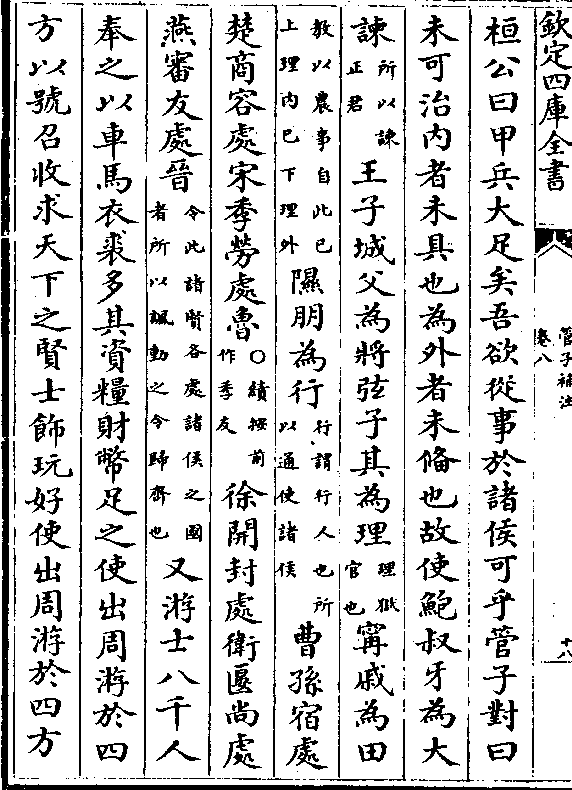 欽定四庫全書
管子補注
卷八
十八
桓公曰甲兵大足矣吾欲從事於諸侯可乎管子對曰
未可治内者未具也為外者未偹也故使鮑叔牙為大
諫所以諫正君王子城父為將弦子其為理理獄官也寗戚為田
教以農事自此已上理内已下理外隰朋為行行謂行人也所以通使諸侯曹孫宿處
楚商容處宋季勞處魯○績按前作季友徐開封處衛匽尚處
燕審友處晉令此諸賢各處諸侯之國者所以諷動之令歸齊也又游士八千人
奉之以車馬衣裘多其資糧財幣足之使出周游於四
方以號召收求天下之賢士飾玩好使出周游於四方